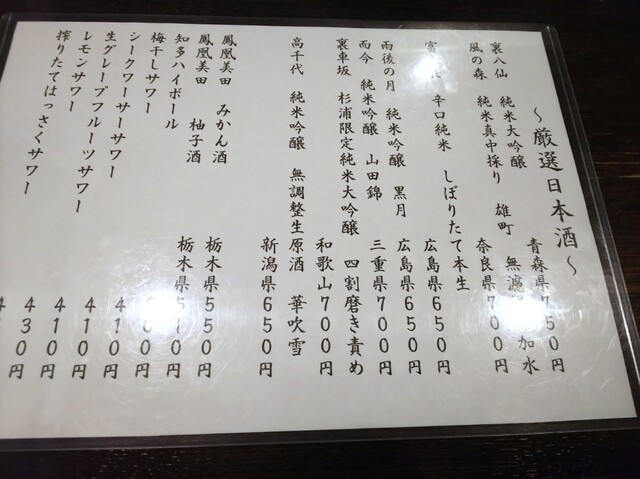 ～厳選日本酒～
裏八仙 純米大吟醸 雄町
青森県750円
風の森 純米真中採り 無濾 加水
奈良県700円
辛口純米 しぼりたて本生
広島県650円
雨後の月 純米吟醸 黒月
広島県650円
而今 純米吟醸 山田錦
三重県700円
裏車坂 杉浦限定純米大吟醸 四割磨き責め
和歌山700円
高千代 純米吟醸 無調整生原酒 華吹雪
新潟県650円
鳳凰美田 みかん酒
栃木県550円
鳳凰美田 柚子酒
栃木県510円
知多ハイボール
円
梅干しサワー
410円
シークワーサーサワー
410円
生グレープフルーツサワー
410円
レモンサワー
430円
搾りたてはっさくサワー